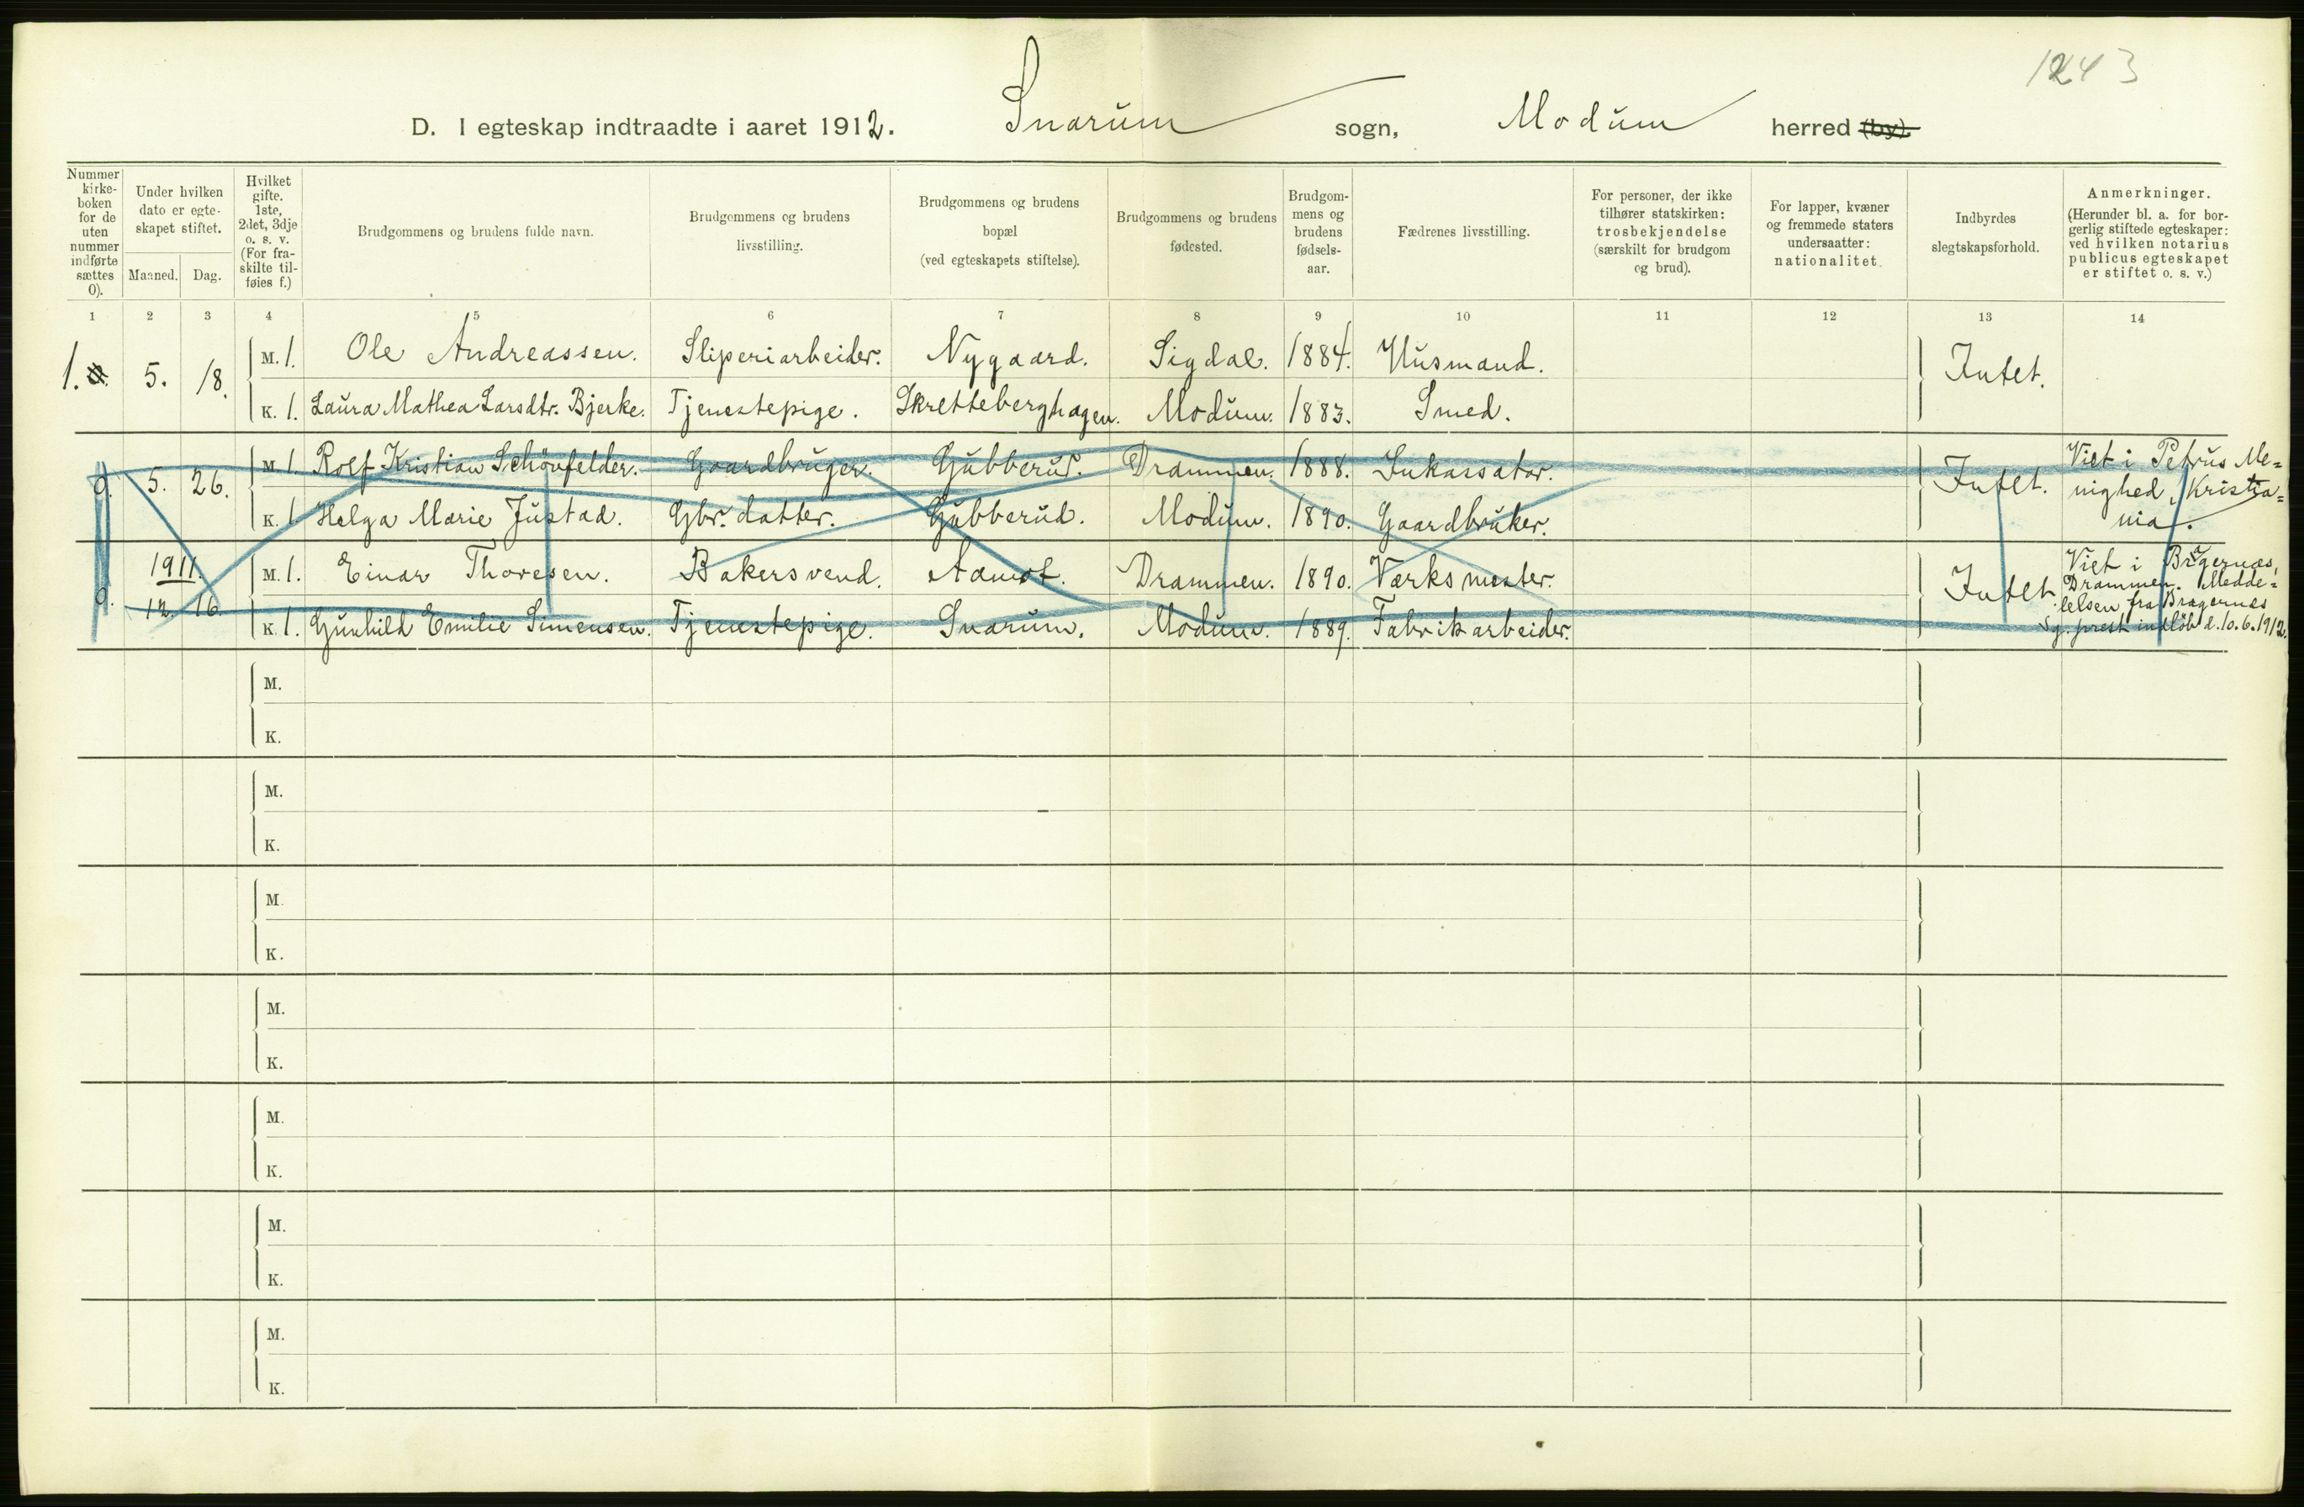 1243
D. I egteskap indtraadte i aaret 1912. Snarum sogn, Modum herred (by).
Nummer kirke-boken for de uten nummer indførte sættes 0).
Under hvilken dato er egte-skapet stiftet.
Maaned. Dag.
Hvilket gifte. 1ste, 2det, 3dje o. s. v. (For fra-skilte til-føies f.)
Brudgommens og brudens fulde navn.
Brudgommens og brudens livsstilling.
Brudgommens og brudens bopæl (ved egteskapets stiftelse).
Brudgommens og brudens fødested.
Brudgom-mens og brudens fødsels-aar.
Fædrenes livsstilling.
For personer, der ikke tilhører statskirken: trosbekjendelse (særskilt for brudgom og brud).
For lapper, kvæner og fremmede staters undersaatter: nationalitet.
Indbyrdes slegtskapsforhold.
Anmerkninger. (Herunder bl. a. for bor-gerlig stiftede egteskaper: ved hvilken notarius publicus egteskapet er stiftet o. s. v.)
1 2 3 4 5 6 7 8 9 10 11 12 13 14
1. 0. 5. 18. M. 1. Ole Andreassen. Sliperiarbeider. Nygaard. Sigdal. 1884. Husmand. Intet.
K. 1. Laura Mathea Larsdtr. Bjerke. Tjenestepige. Skretteberghagen. Modum. 1883. Smed.
0. 5. 26. M. 1. Rolf Kristian Schönfelder. Gaardbruger. Gubberud. Drammen. 1888. Inkassator. Intet. Viet i Petrus Me=
nighed, Kristia=
nia.
K. 1. Helga Marie Justad. Gbr. datter. Gubberud. Modum. 1890. Gaardbruker.
0. 1911. 12. 16. M. 1. Einar Thoresen. Bakersvend. Aamot. Drammen. 1890. Værksmester. Intet. Viet i Bragernæs,
Drammen. Medde=
lelsen fra Bragernes
sg. prest indløb d. 10.6.1912.
K. 1. Gunhild Emilie Simensen. Tjenestepige. Snarum. Modum. 1889. Fabrikarbeider.
M.
K.
M.
K.
M.
K.
M.
K.
M.
K.
M.
K.
M.
K.